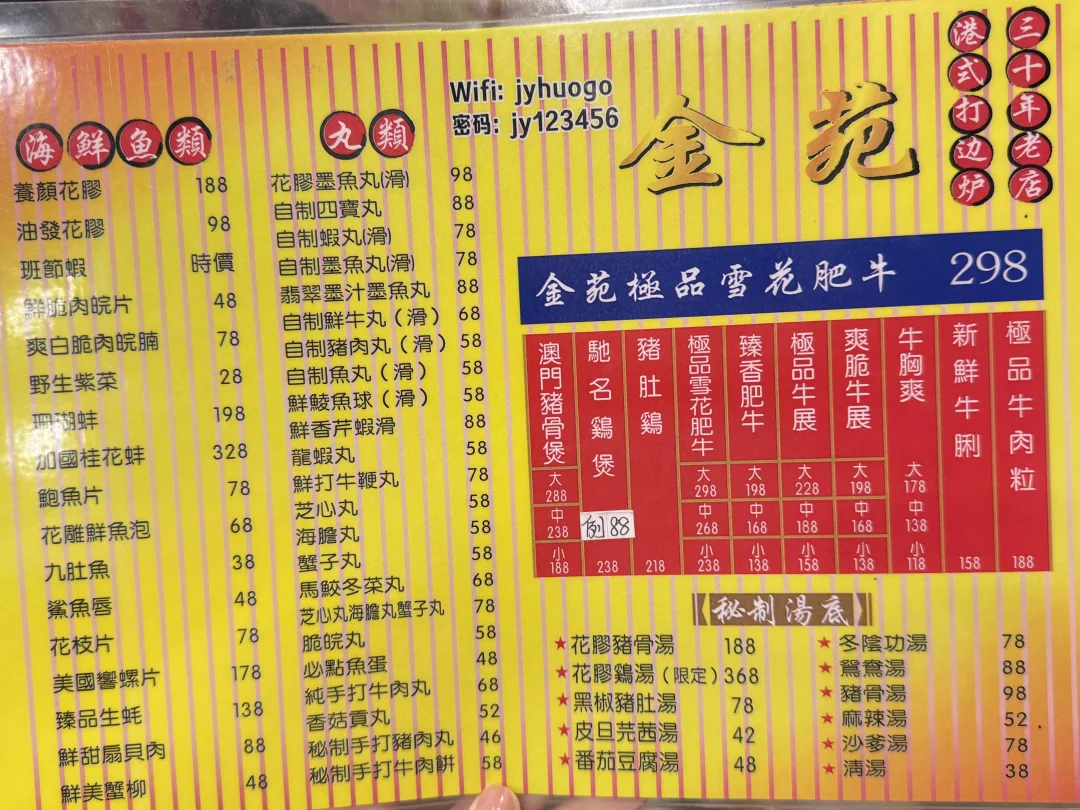 海鮮魚類
養顏花膠 188
油發花膠 98
班節蝦 時價
鮮脆肉皖片 48
爽白脆肉皖腩 78
野生紫菜 28
珊瑚蚌 198
加國桂花蚌 328
鮑魚片 78
花雕鮮魚泡 68
九肚魚 38
鯊魚唇 48
花枝片 78
美國響螺片 178
臻品生蚝 138
鮮甜扇貝肉 88
鮮美蟹柳 48
丸類
花膠墨魚丸(滑) 98
自制四寶丸 88
自制蝦丸(滑) 78
自制墨魚丸(滑) 78
翡翠墨汁墨魚丸 88
自制鮮牛丸（滑） 68
自制豬肉丸（滑） 58
自制魚丸（滑） 58
鮮鯪魚球（滑） 58
鮮香芹蝦滑 88
龍蝦丸 58
鮮打牛鞭丸 78
芝心丸 58
海膽丸 58
蟹子丸 58
馬鮫冬菜丸 68
芝心丸海膽丸蟹子丸 78
脆皖丸 58
必點魚蛋 48
純手打牛肉丸 68
香菇貢丸 52
秘制手打豬肉丸 46
秘制手打牛肉餅 58
Wifi: jyhuogo
密码: jy123456
金苑
三十年老店
港式打边炉
金苑極品雪花肥牛 298
澳門豬骨煲 大 288 中 238 小 188
馳名鷄煲 例88 238
豬肚鷄 218
極品雪花肥牛 大 298 中 268 小 238
臻香肥牛 大 198 中 168 小 138
極品牛展 大 228 中 188 小 158
爽脆牛展 大 198 中 168 小 138
牛胸爽 大 178 中 138 小 118
新鮮牛脷 158
極品牛肉粒 188
秘制湯底
★花膠豬骨湯 188
★花膠鷄湯（限定）368
★黑椒豬肚湯 78
★皮旦芫茜湯 42
★番茄豆腐湯 48
★冬陰功湯 78
★鴛鴦湯 88
★豬骨湯 98
★麻辣湯 52
★沙爹湯 78
★清湯 38